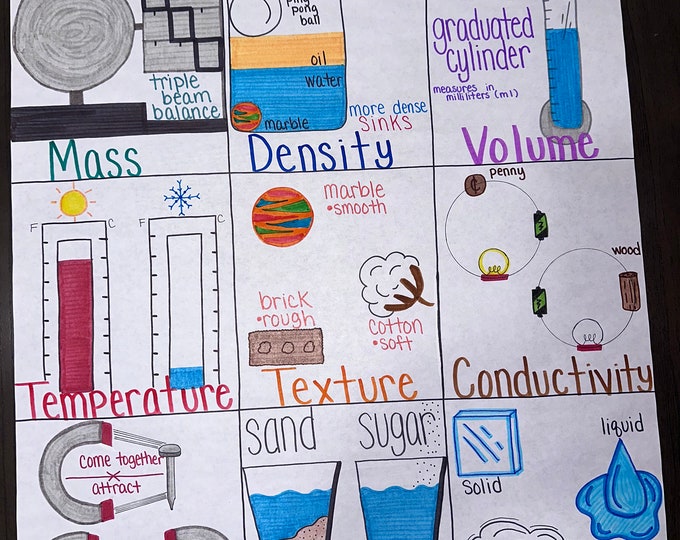 ping
pong
ball
oil
water
marble
more dense
sinks
triple
beam
balance
graduated
cylinder
measures in
milliliters (ml)
Mass
Density
Volume
F C
F C
Temperature
marble
•smooth
brick
•rough
cotton
•soft
Texture
¢
penny
wood
Conductivity
come together
attract
sand
sugar
solid
liquid